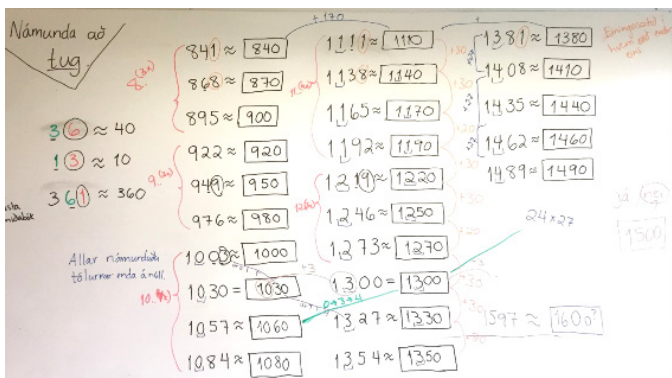 Námunda að
tug.
36 ≈ 40
13 ≈ 10
361 ≈ 360
Allar námundaðar
tölurnar enda á núlli.
841 ≈ 840
868 ≈ 870
895 ≈ 900
922 ≈ 920
949 ≈ 950
976 ≈ 980
1003 ≈ 1000
1030 = 1030
1057 ≈ 1060
1084 ≈ 1080
+170
1111 ≈ 1110
1138 ≈ 1140
1165 ≈ 1170
1192 ≈ 1190
1219 ≈ 1220
1246 ≈ 1250
1273 ≈ 1270
1300 = 1300
1327 ≈ 1330
1354 ≈ 1350
+3
0+3+4
+30
+30
+20
+30
+30
+20
+30
+30
1381 ≈ 1380
1408 ≈ 1410
1435 ≈ 1440
1462 ≈ 1460
1489 ≈ 1490
24×27
já
1500
1597 ≈ 1600?